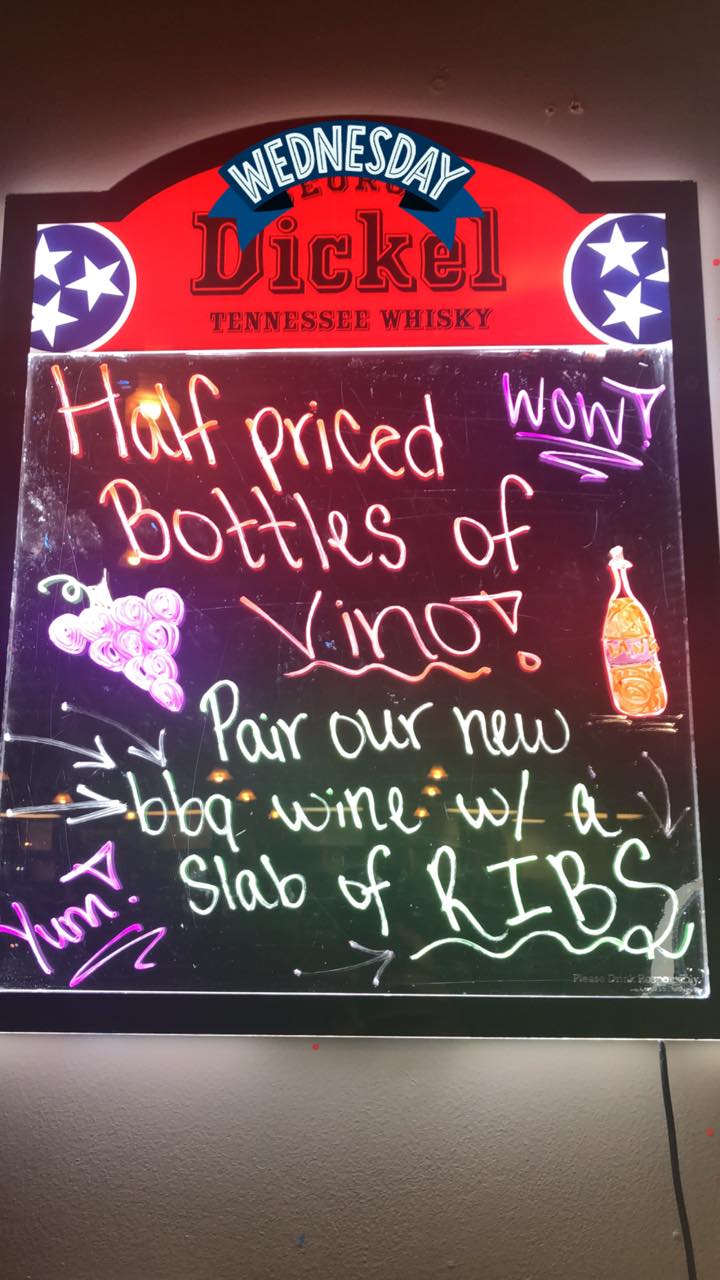 WEDNESDAY
Dickel
TENNESSEE WHISKY
Half priced
WOW!
Bottles of
Vino!
Pair our new
bbq wine w/ a
Slab of RIBS
Yum!
Please Drink Responsibly.